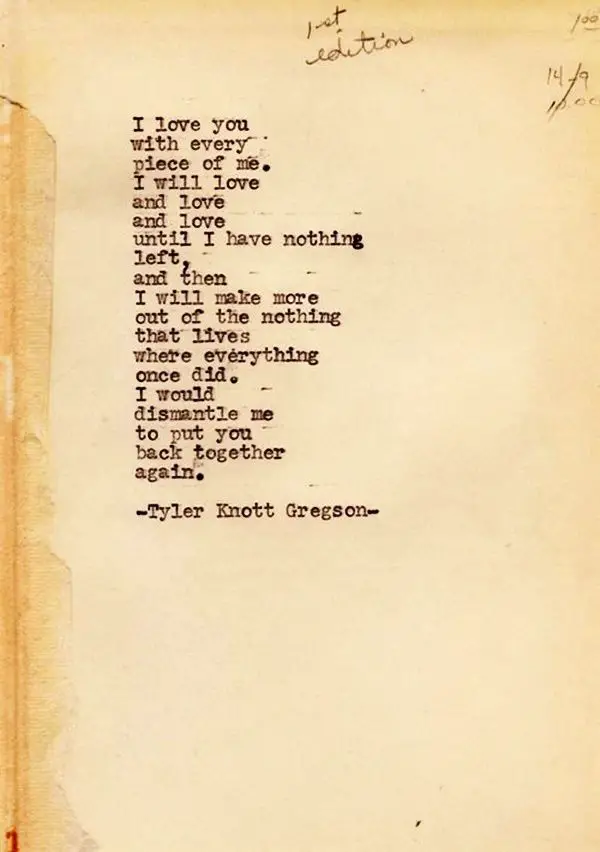 1st
edition
1.00
14/9
10.00
I love you
with every
piece of me.
I will love
and love
and love
until I have nothing
left,
and then
I will make more
out of the nothing
that lives
where everything
once did.
I would
dismantle me
to put you
back together
again.
-Tyler Knott Gregson-